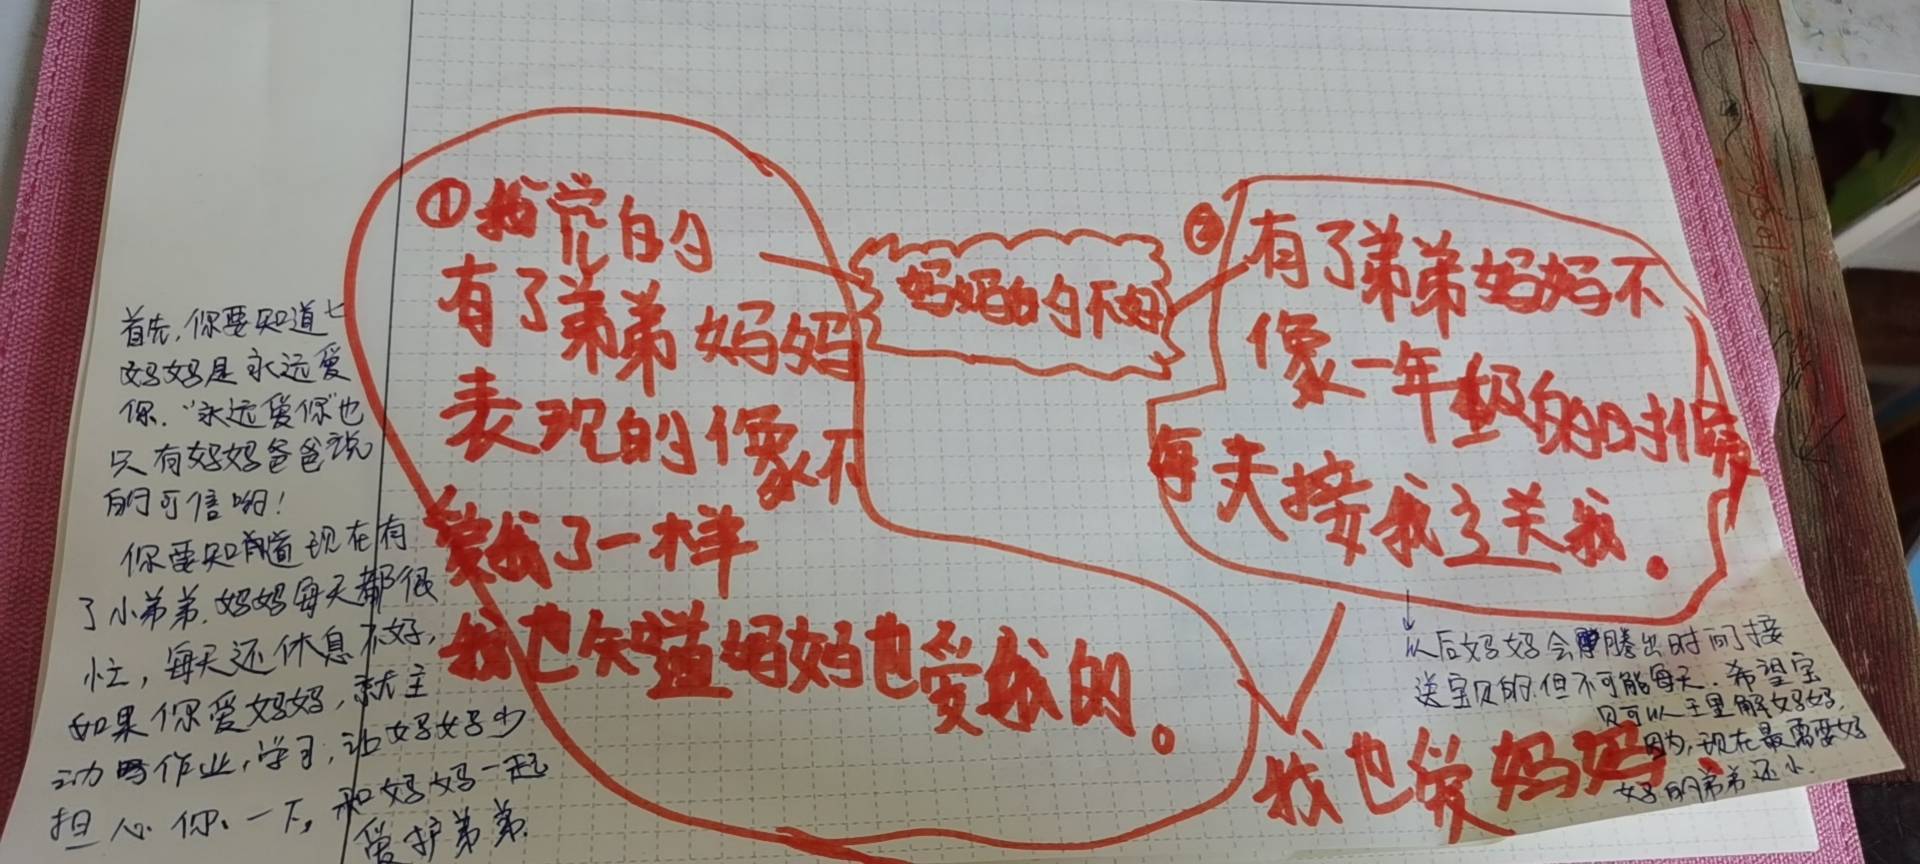 妈妈的不好
①我觉的
有了弟弟妈妈
表现的像不
爱我了一样
我也知道妈妈也爱我的。
②有了弟弟妈妈不
像一年级的时候
每天接我了关我。
我也爱妈妈
首先,你要知道
妈妈是永远爱
你.“永远爱你”也
只有妈妈爸爸说
的可信哟!
你要知道现在有
了小弟弟.妈妈每天都很
忙,每天还休息不好,
如果你爱妈妈,就主
动写作业,学习,让妈妈少
担心你一下,和妈妈一起
爱护弟弟.
以后妈妈会腾出时间接
送宝贝的.但不可能每天.希望宝
贝可以理解妈妈,
因为,现在最需要妈
妈的弟弟还小.